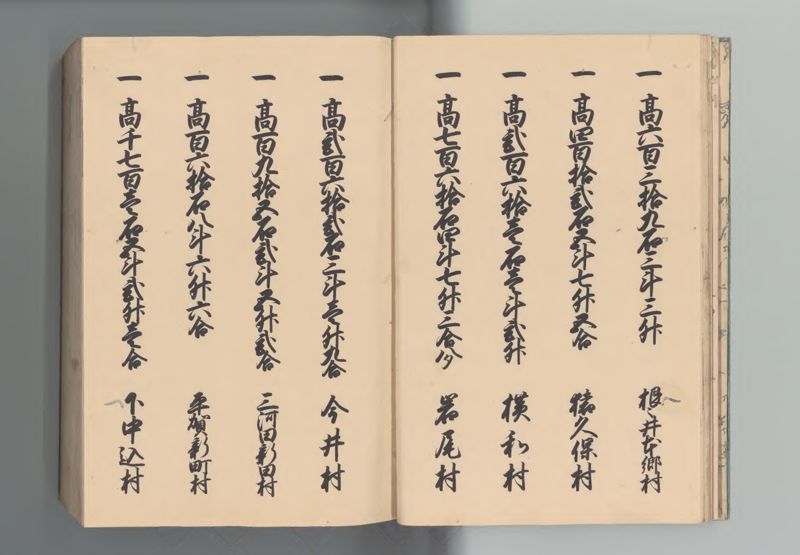 一 高六百三拾九石三斗三升 根々井本郷村
一 高四百拾弐石五斗七升五合 猿久保村
一 高弐百六拾壱石壱斗弐升 横和村
一 高七百六拾石四斗七升三合八夕 岩尾村
一 高弐百六拾弐石三斗壱升九合 今井村
一 高百九拾五石弐斗五升弐合 三河田新田村
一 高百六拾石八斗六升六合 平賀新町村
一 高千七百壱石五斗弐升壱合 下中込村